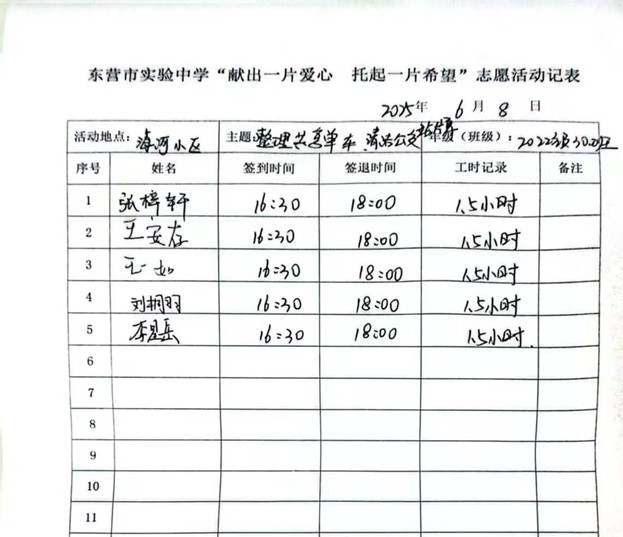 东营市实验中学“献出一片爱心 托起一片希望”志愿活动记表
2025年 6 月 8 日
活动地点: 小区 主题:整理共享单车 清洁公交 年级(班级):2022级
序号 姓名 签到时间 签退时间 工时记录 备注
1 张梓轩 16:30 18:00 1.5小时
2 王安 16:30 18:00 1.5小时
3 王一如 16:30 18:00 1.5小时
4 刘桐羽 16:30 18:00 1.5小时
5 李昱岳 16:30 18:00 1.5小时.
6
7
8
9
10
11